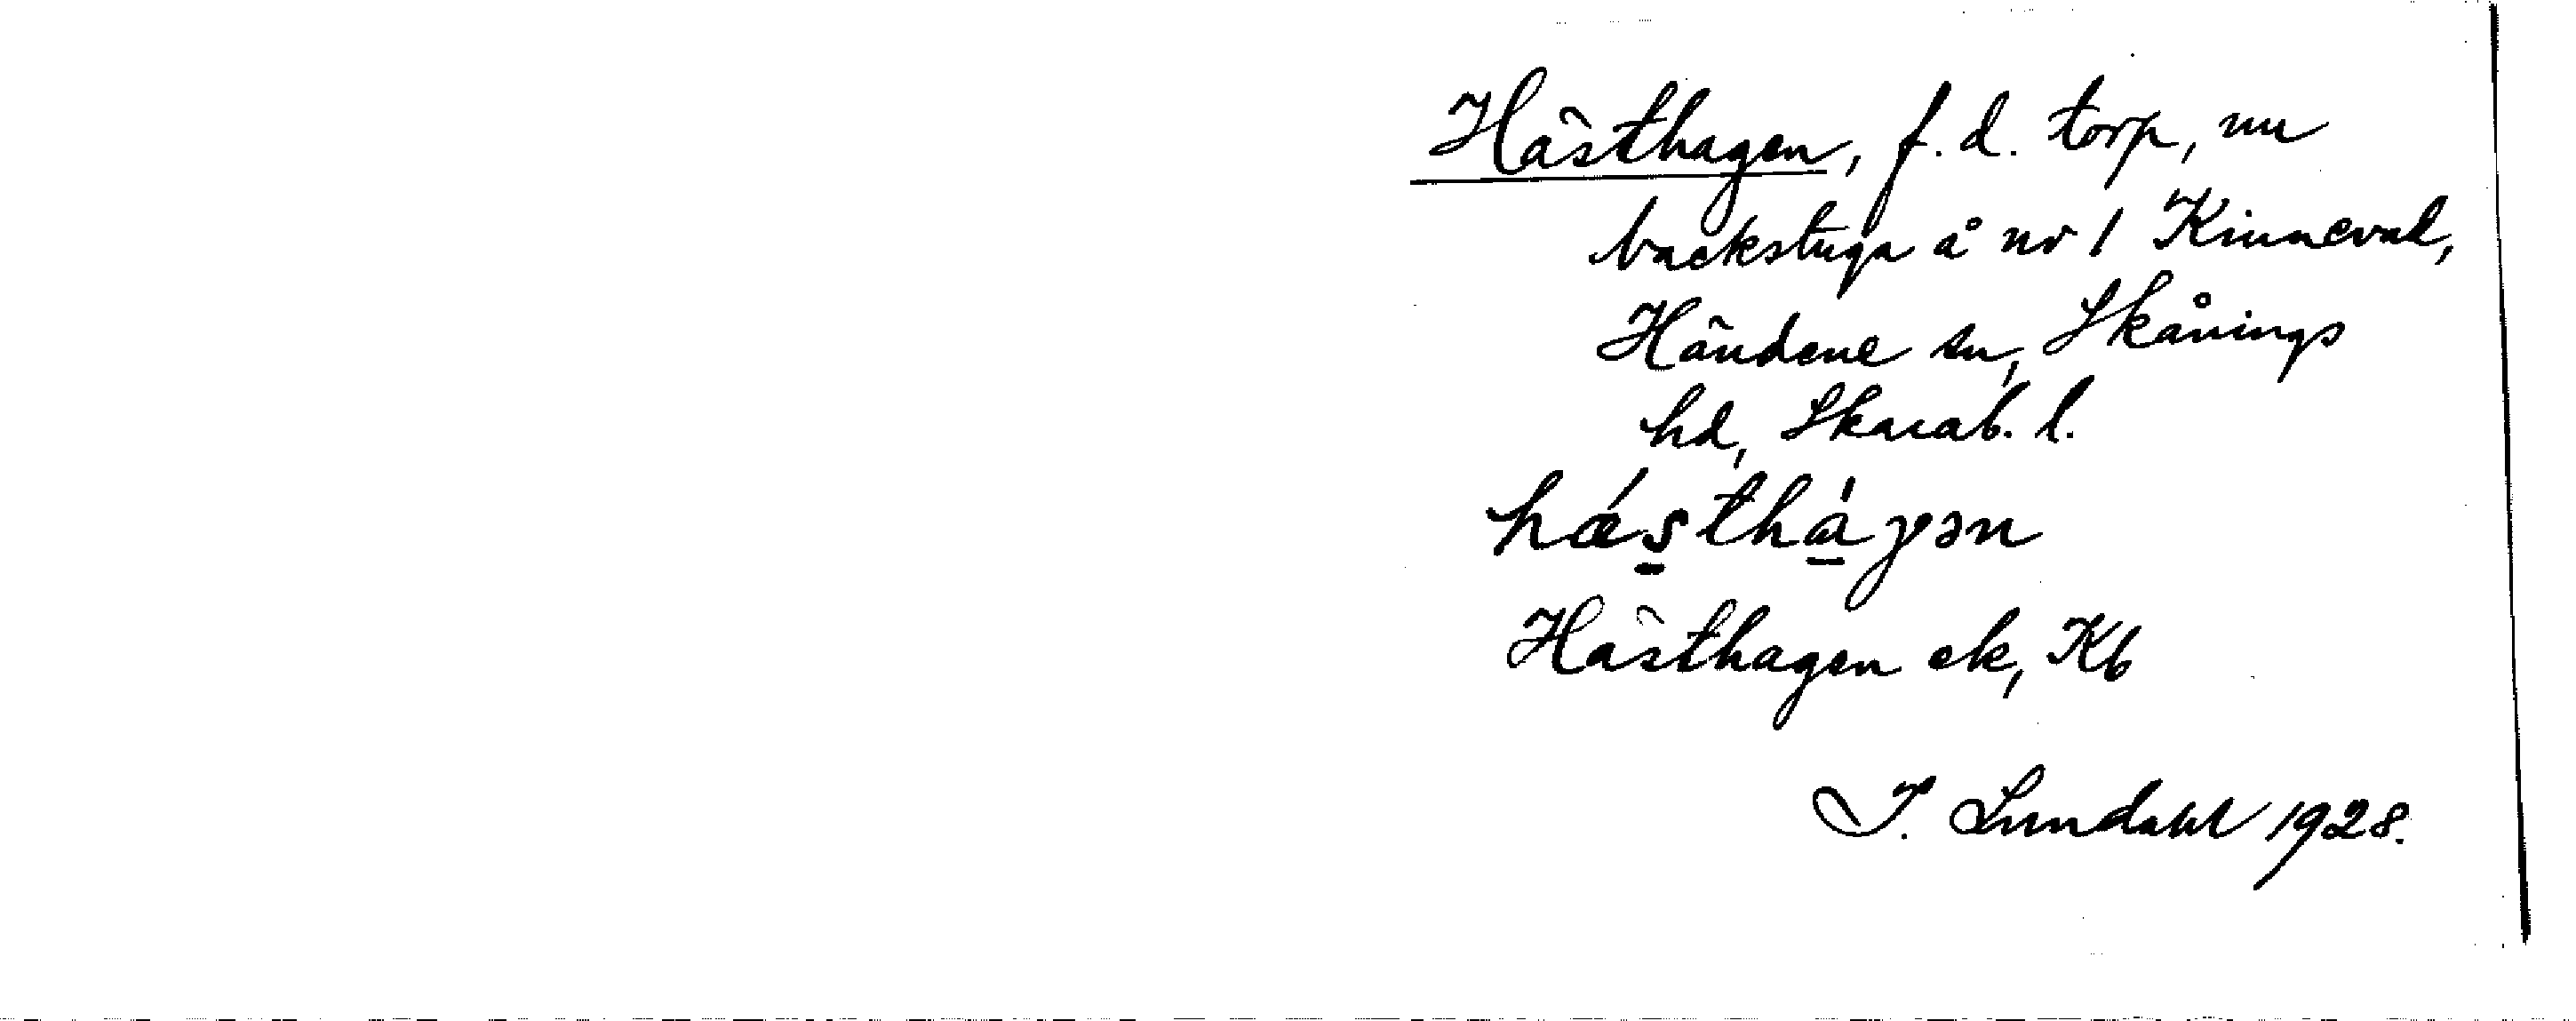 Hästhagen, f.d. torp, nu
backstuga å nr 1 Kinneval,
Händene sn, Skånings
hd, Skarab. l.
hǽs̱thà̱γən
Hästhagen ek, Kb
I. Lundahl 1928.